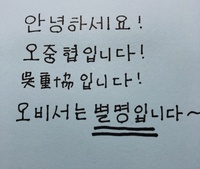 안녕하세요!
오중협입니다!
吳重協입니다!
오비서는 별명입니다~